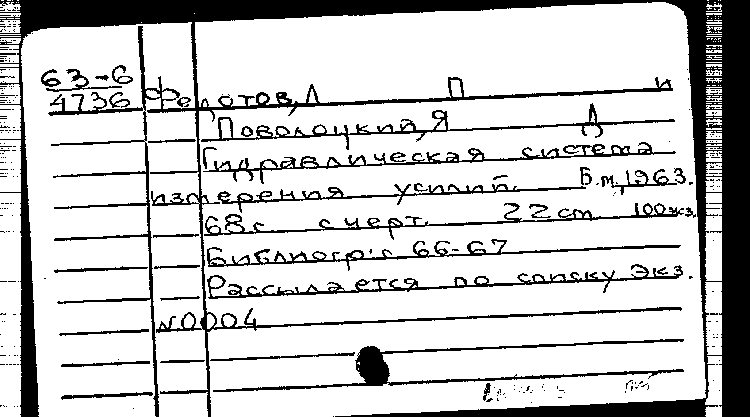 63-6
4736 Федотов, Л П и
Поволоцкий, Я Д
Гидравлическая система
измерения усилий. Б.м., 1963.
68 с с черт. 22 cm 100 экз.
Библиогр: с 66-67
Рассылается по списку Экз.
N0004